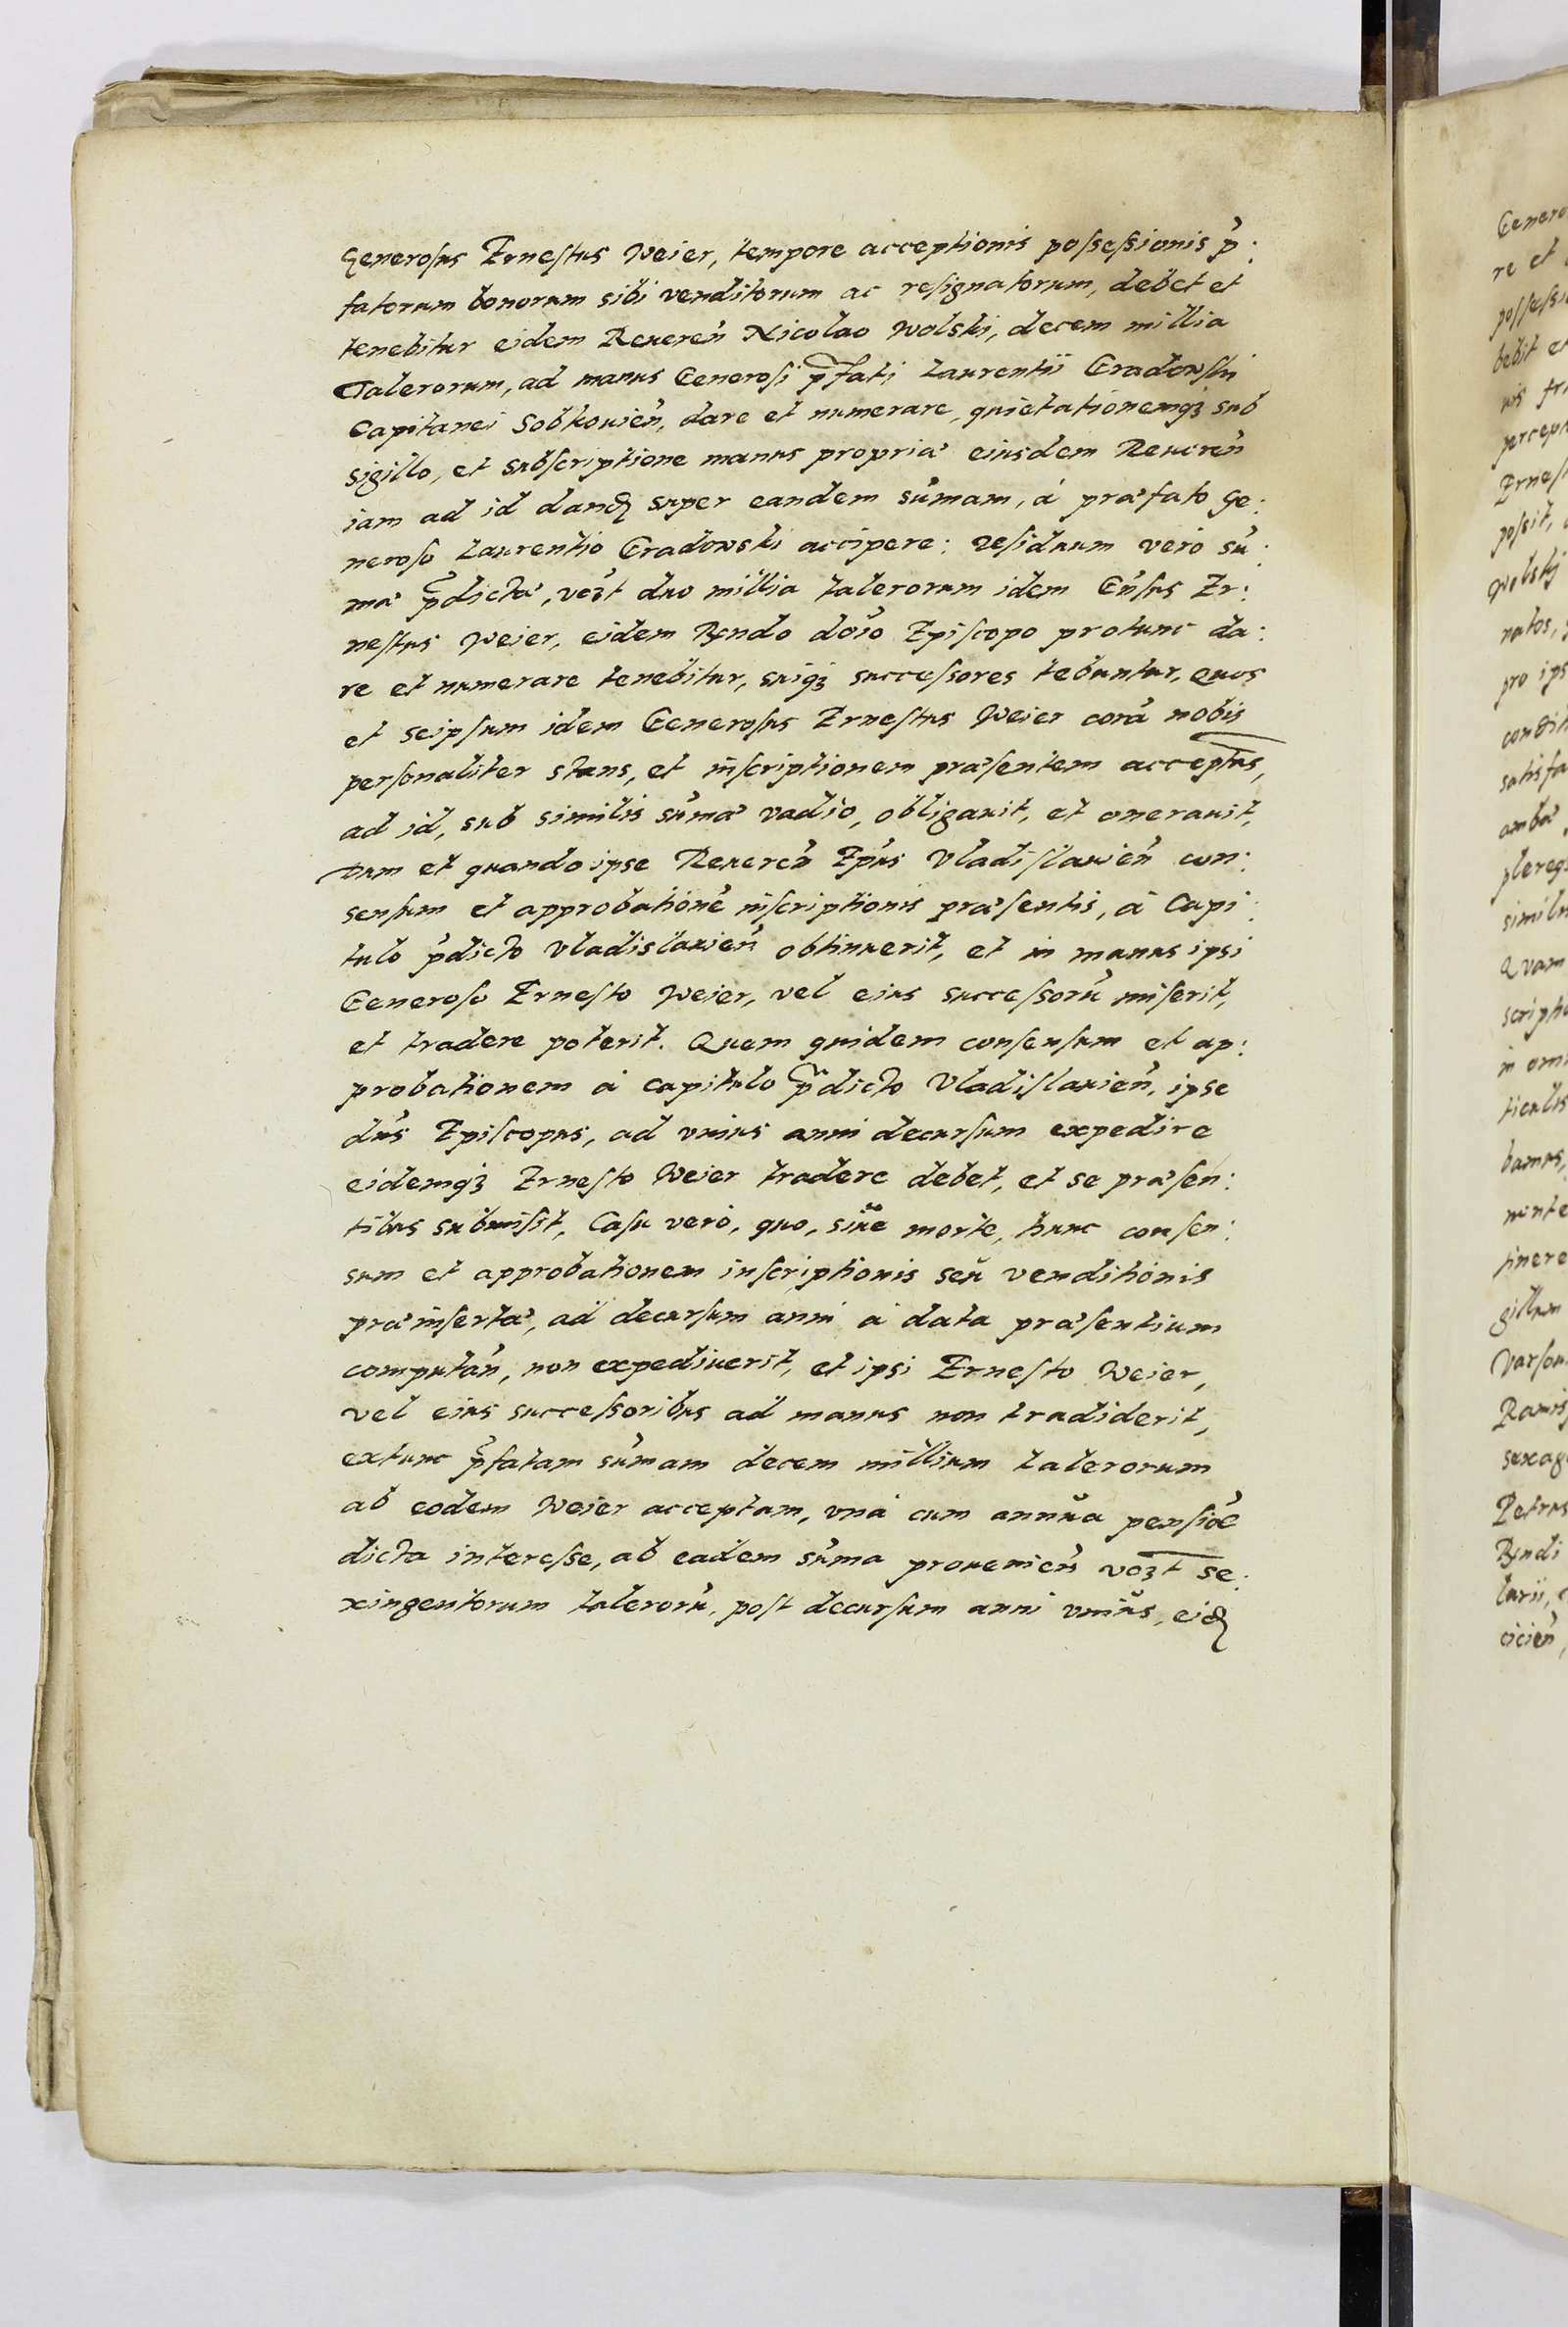 Generosus Ernestus Weier, tempore acceptionis possessionis p̃:
fatorum bonorum sibi venditorum ac resignatorum, debet et
tenebitur eidem Reueren̄ Nicolao Wolski, decem millia
Talerorum, ad manus Generosi p̃fati Laurentii Gradowski
Capitanei Sobkouien̄, dare et numerare, quietationemqꝫ sub
sigillo, et subscriptione manus propriæ eiusdem Reueren̄
iam ad id dand super eandem sūmam, à præfato Ge:
neroso Laurentio Gradowski accipere: residuum vero sū:
mæ p̃dictæ, vꝫt duo millia talerorum idem Gn̄sus Er:
nestus Weier, eidem Rndo dn̄o Episcopo protunc da:
re et numerare tenebitur, suiqꝫ successores tebuntur, Quos
et seipsum idem Generosus Ernestus Weier corā nobis
personaliter stans, et inscriptionem præsentem acceptās,
ad id, sub similis sūmæ vadio, obligauit, et onerauit,
Dum et quando ipse Reueren̄ Ep̄us Vladislauien̄ con:
sensum et approbationē inscriptionis præsentis, à Capi:
tulo p̃dicto Vladislauien̄ obtinuerit, et in manus ipsi
Generoso Ernesto Weier, vel eius successorū miserit,
et tradere poterit. Quem quidem consensum et ap:
probationem à capitulo p̃dicto Vladislauien̄, ipse
dn̄s Episcopus, ad vnius anni decursum expedire
eidemqꝫ Ernesto Weier tradere debet, et se præsen:
tibus submisit, Casu verò, quo, siue morte, hunc consen:
sum et approbationem inscriptionis seu venditionis
præinsertæ, ad decursum anni à data præsentium
computan̄, non expediuerit, et ipsi Ernesto Weier,
vel eius successoribus ad manus non tradiderit,
extunc p̃fatam sūmam decem millium talerorum
ab eodem Weier acceptam, vnà cum annua pensiōe
dicta interesse, ab eadem sūma prouenien̄ vꝫt se:
xingentorum talerorū, post decursum anni vnius, eid